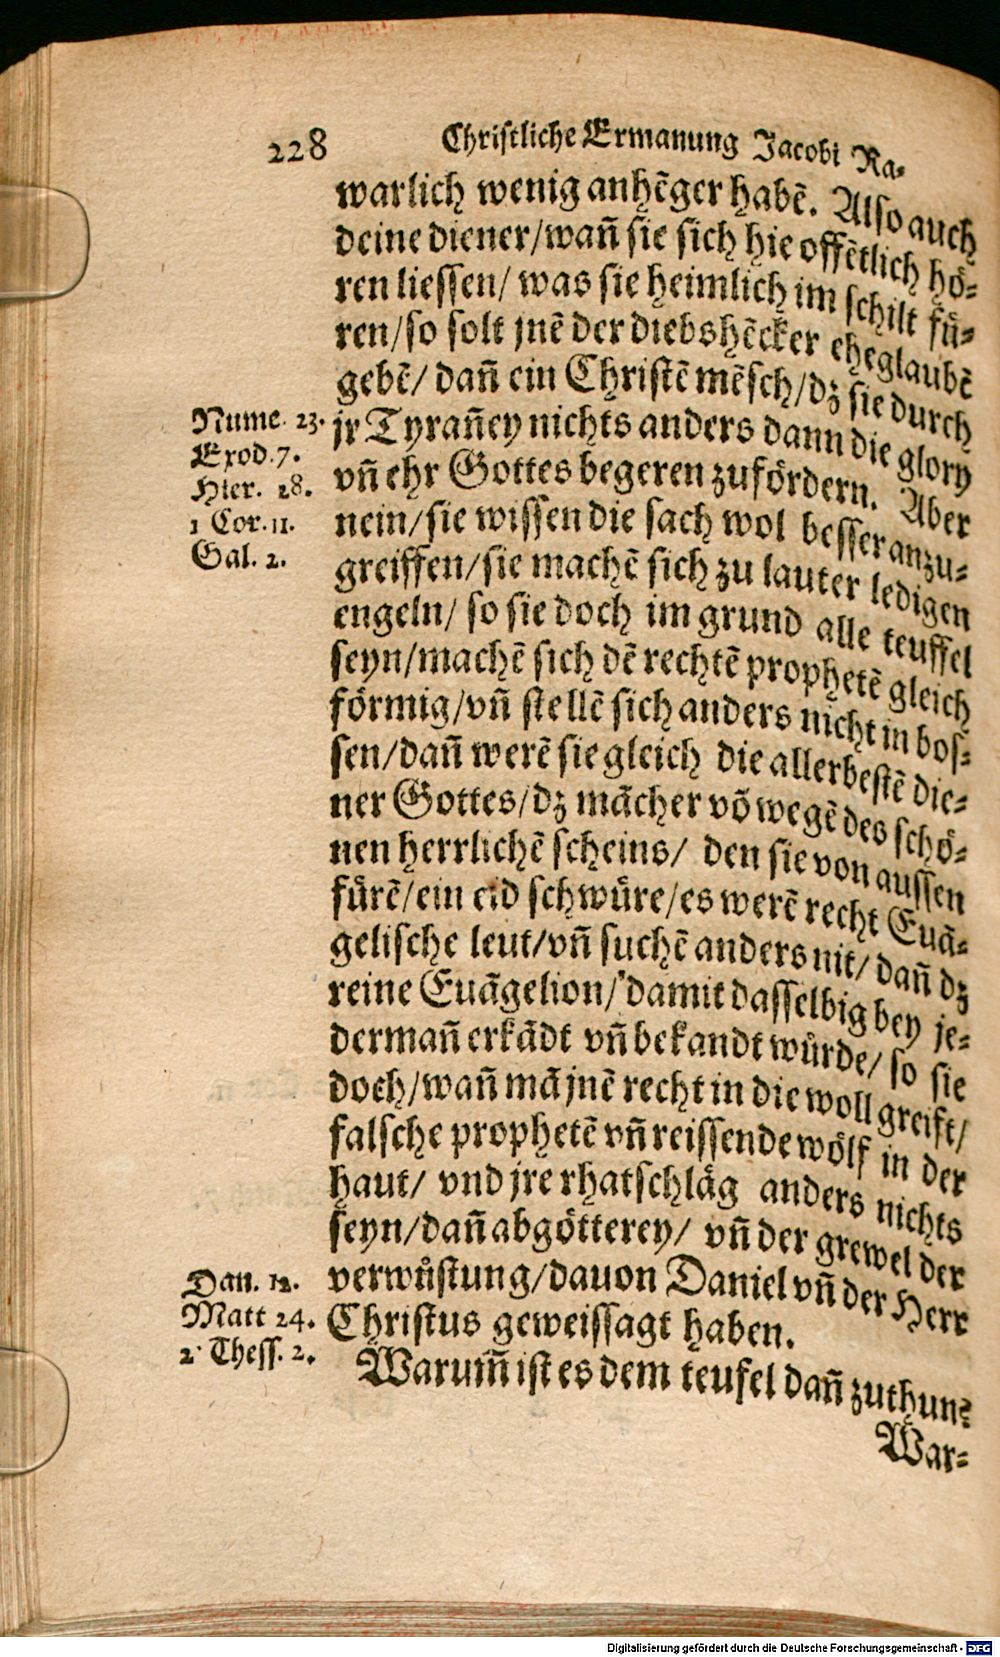 228 Christliche Ermanung Jacobi Ra-
warlich wenig anhẽger habẽ. Also auch
deine diener/wañ sie sich hie offẽtlich hö-
ren liessen/ was sie heimlich im schilt fü-
ren/so solt jnẽ der diebshẽcker eheglaubẽ
gebẽ/ dañ ein Christẽ mẽsch/dz sie durch
jr Tyrañey nichts anders dann die glory
vñ ehr Gottes begeren zufördern. Aber
nein/sie wissen die sach wol besser anzu-
greiffen/sie machẽ sich zu lauter ledigen
engeln/ so sie doch im grund alle teuffel
seyn/machẽ sich dẽ rechtẽ prophetẽ gleich
förmig/vñ stellẽ sich anders nicht in bos-
sen/dañ werẽ sie gleich die allerbestẽ die-
ner Gottes/dz mãcher võ wegẽ des schö-
nen herrlichẽ scheins/ den sie von aussen
fürẽ/ein eid schwüre/es werẽ recht Euã-
gelische leut/vñ suchẽ anders nit/ dañ dz
reine Euãgelion/ damit dasselbig bey je-
dermañ erkãdt vñ bekandt würde/ so sie
doch/wañ mã jnẽ recht in die woll greift/
falsche prophetẽ vñ reissende wölf in der
haut/ vnd jre rhatschläg anders nichts
seyn/dañ abgötterey/ vñ der grewel der
verwüstung/dauon Daniel vñ der Herr
Christus geweissagt haben.
Warum̃ ist es dem teufel dañ zuthun?
War-
Nume. 23.
Exod. 7.
Hier. 28.
1 Cor. 11.
Gal. 2.
Dan. 12.
Matt 24.
2. Thess. 2.
Digitalisierung gefördert durch die Deutsche Forschungsgemeinschaft - DFG